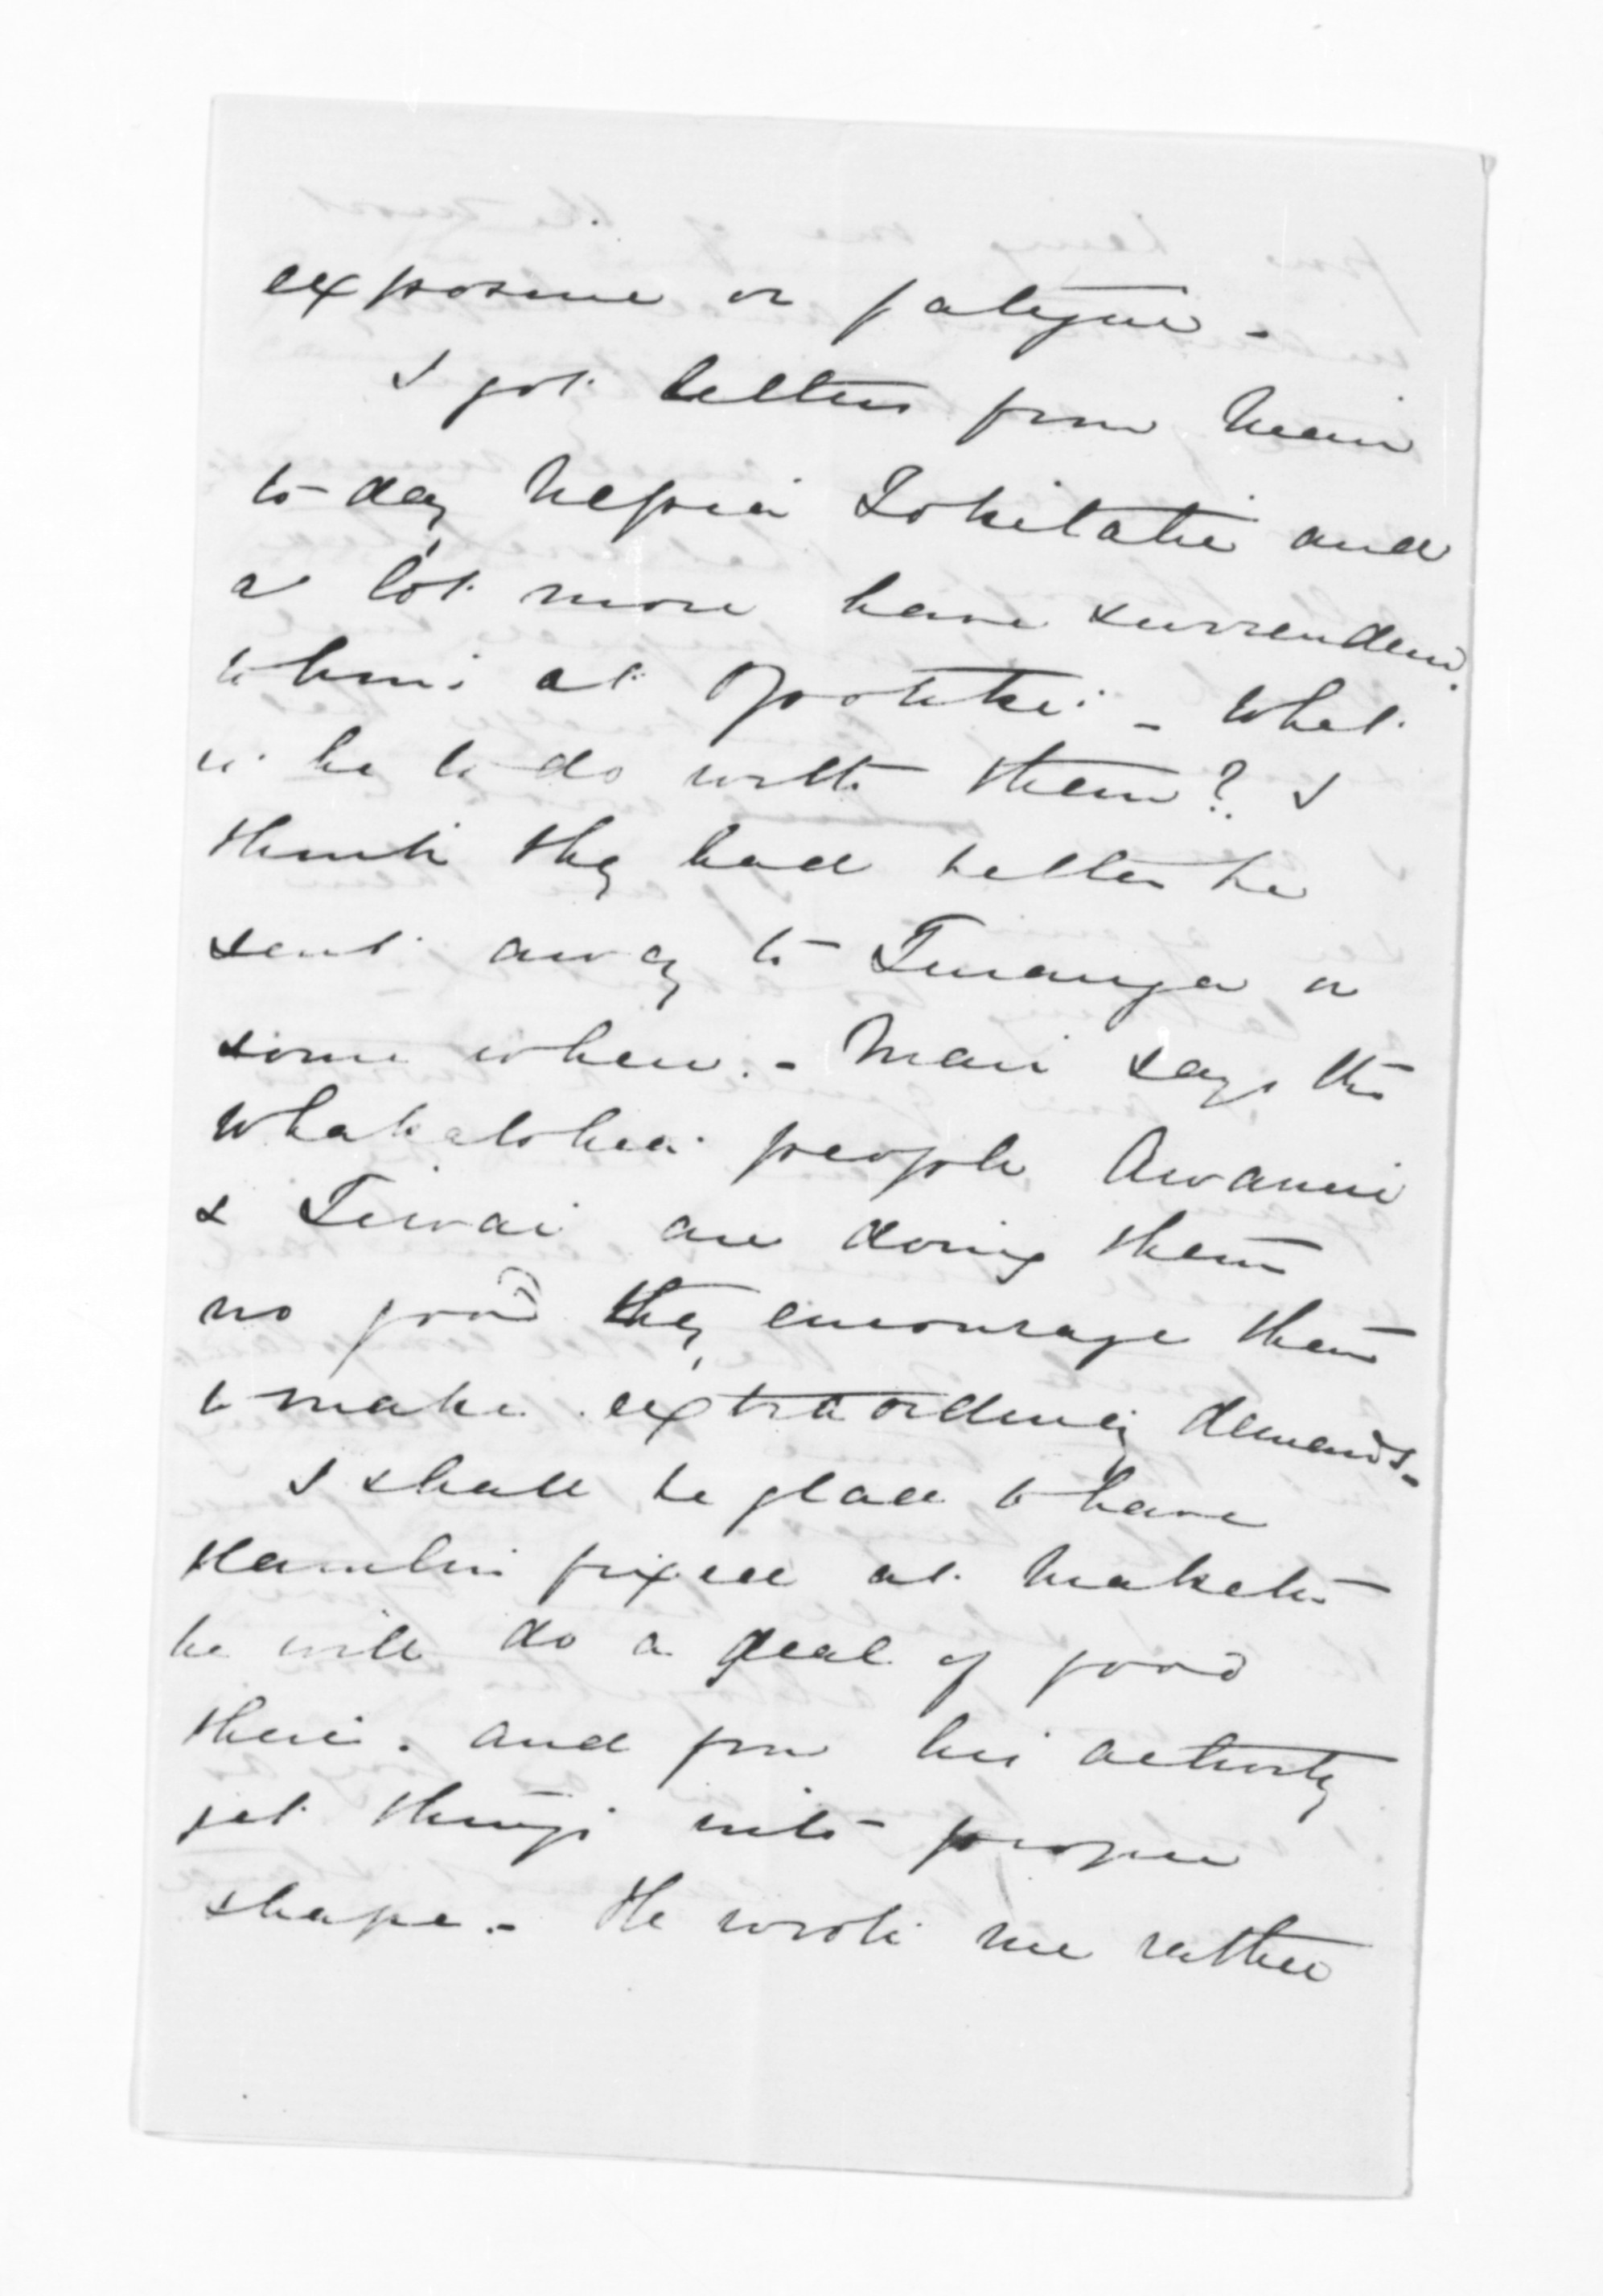 exposure or fatigue -
I got letters from Mair
to-day Nepia Tokitahi and
a lot more have surrendered
to him at Opotiki - What
is he to do with them? I
think they had better be
sent away to Turanga or
some where. - Mair says the
Whakatohea people Awanui
& Tiwai are doing them
no good they encourage them
to make extraordinary demands -
I shall be glad to have
Hamlin fixed at Maketu
he will do a deal of good
there. and from his activity
get things into proper
shape. - He wrote me rather